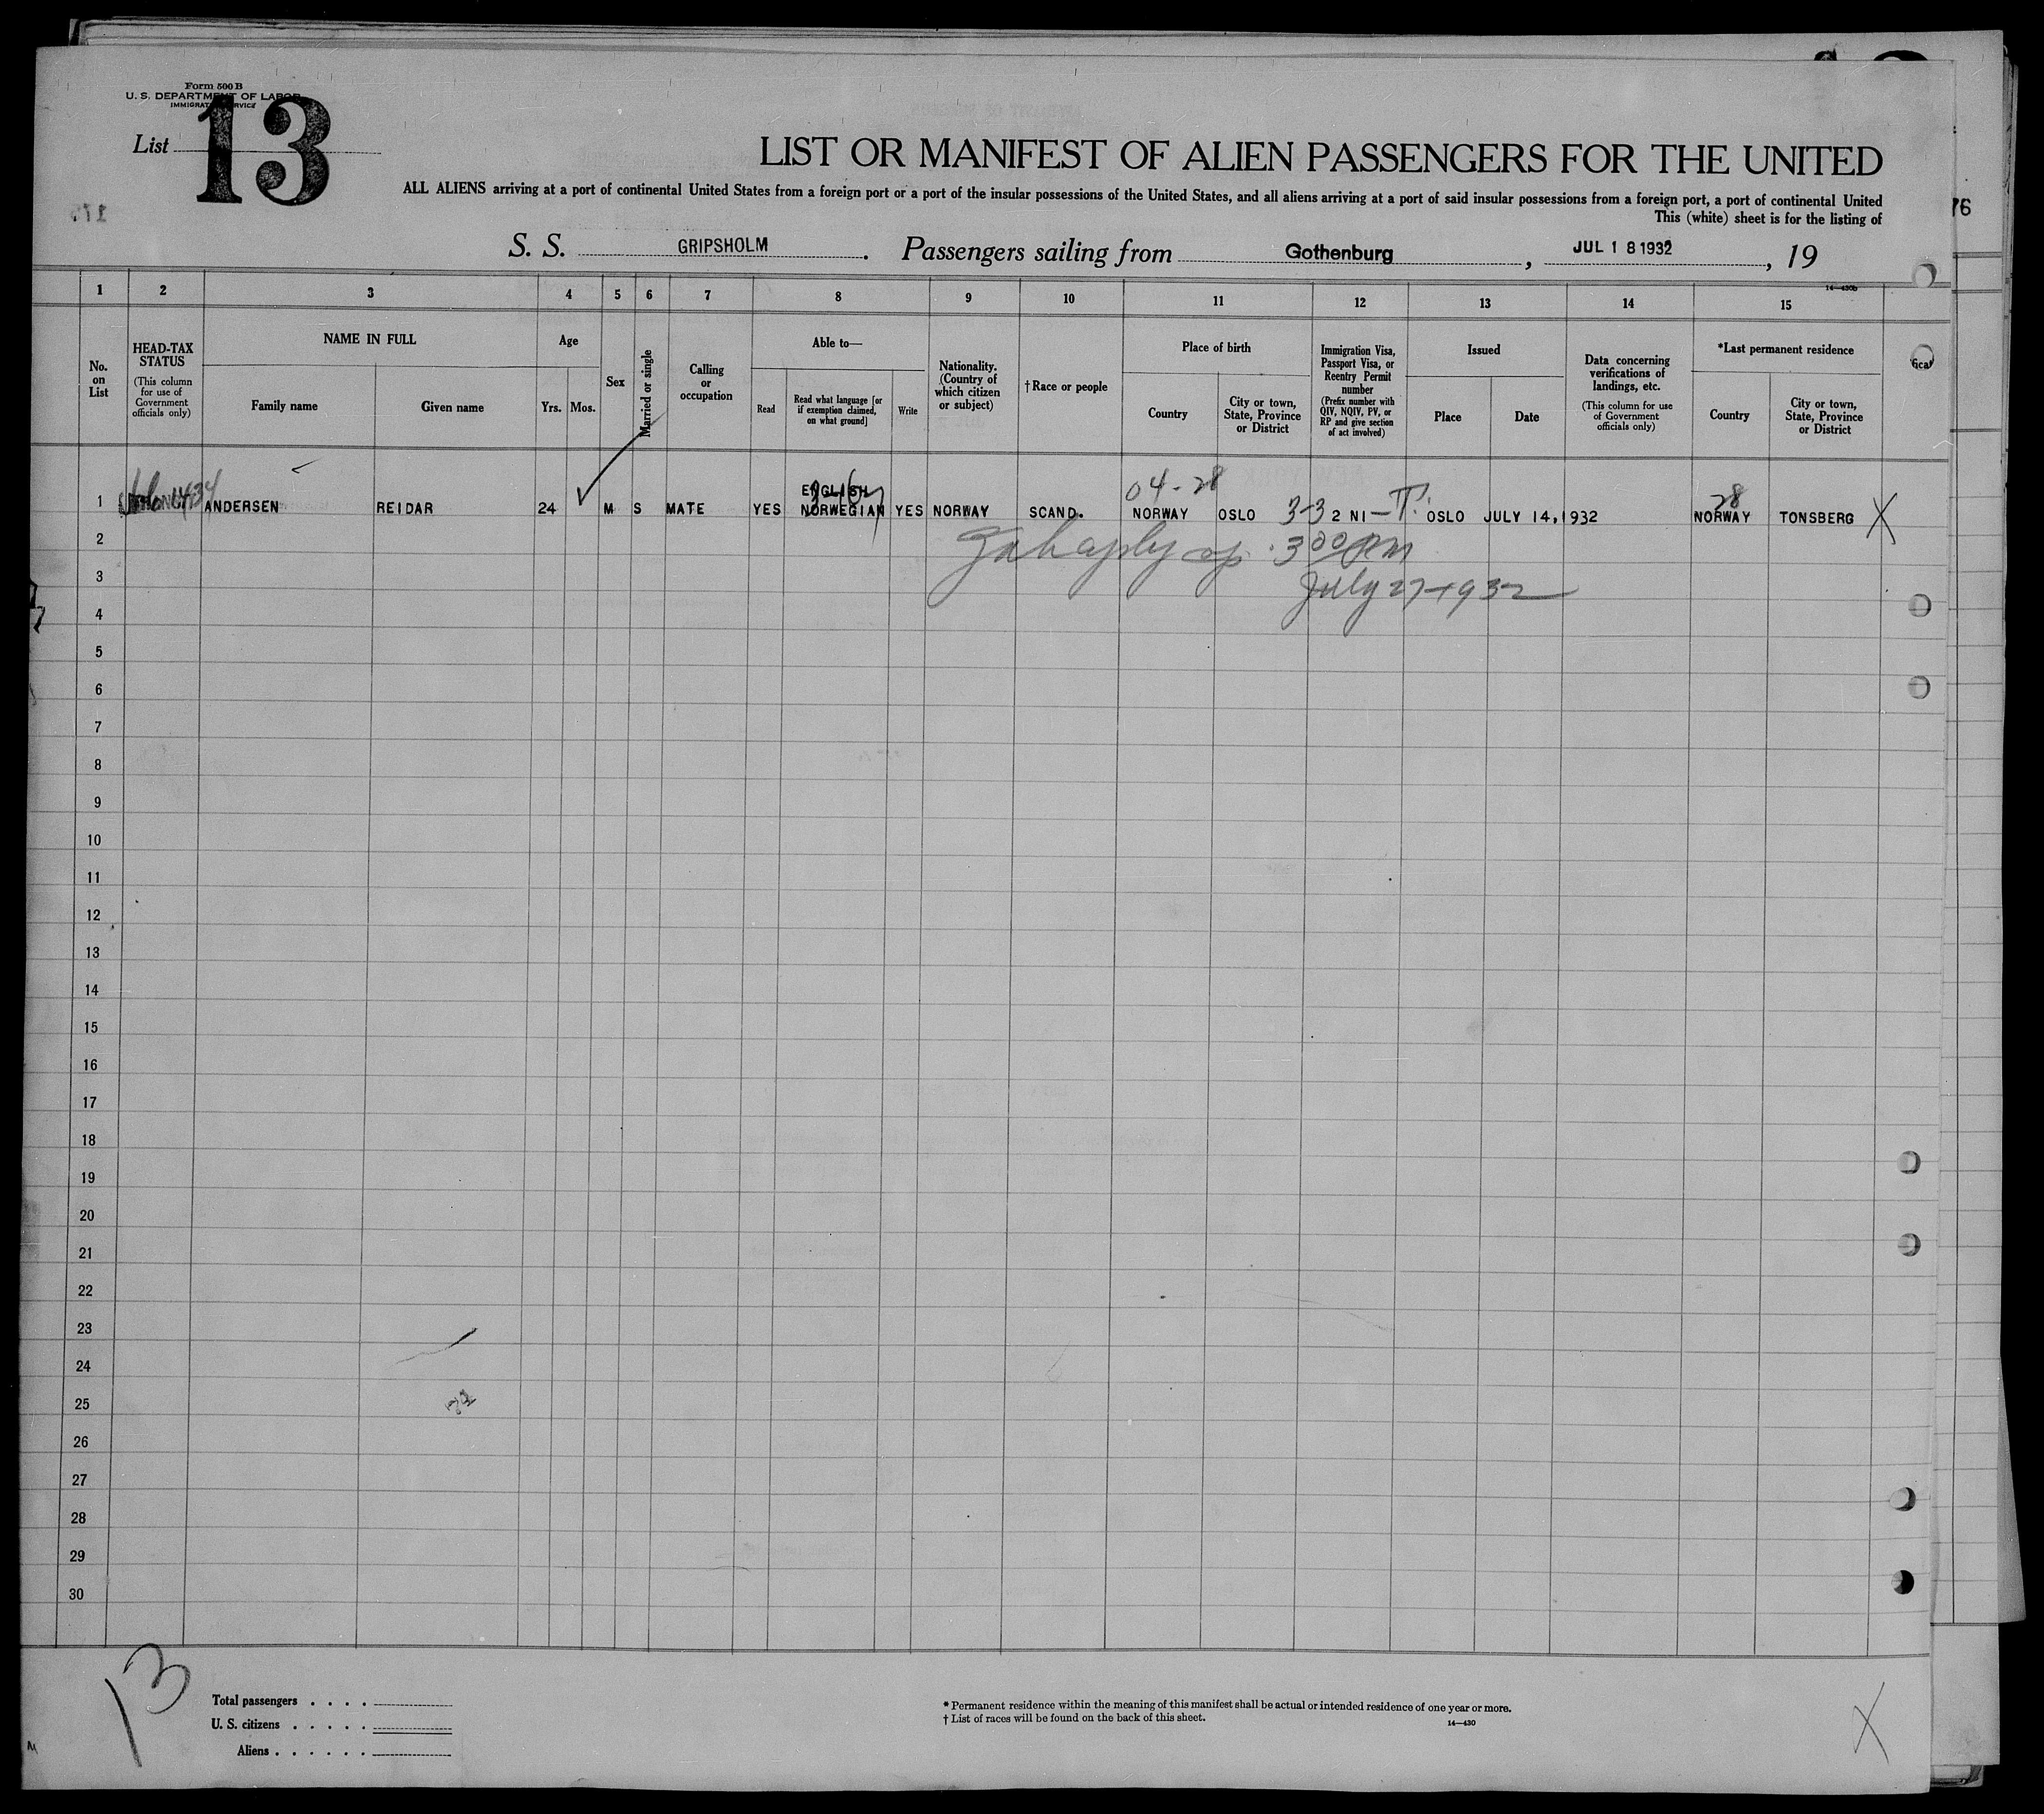 Form 500 B
U. S. DEPARTMENT OF LABOR
IMMIGRATION SERVICE
List 13
LIST OR MANIFEST OF ALIEN PASSENGERS FOR THE UNITED
ALL ALIENS arriving at a port of continental United States from a foreign port or a port of the insular possessions of the United States, and all aliens arriving at a port of said insular possessions from a foreign port, a port of continental United
This (white) sheet is for the listing of
76
S. S. GRIPSHOLM. Passengers sailing from Gothenburg, JUL 18 1932, 19
14—430b
1 2 3 4 5 6 7 8 9 10 11 12 13 14 15
No. on List
HEAD-TAX STATUS
(This column for use of Government officials only)
NAME IN FULL
Family name
Given name
Age
Yrs.
Mos.
Sex
Married or single
Calling or occupation
Able to—
Read
Read what language [or if exemption claimed, on what ground]
Write
Nationality. (Country of which citizen or subject)
†Race or people
Place of birth
Country
City or town, State, Province or District
Immigration Visa, Passport Visa, or Reentry Permit number
(Prefix number with QIV, NQIV, PV, or RP and give section of act involved)
Issued
Place
Date
Data concerning verifications of landings, etc.
(This column for use of Government officials only)
*Last permanent residence
Country
City or town, State, Province or District
04-28
28
ENGLISH
1 ANDERSEN REIDAR 24 M S MATE YES NORWEGIAN YES NORWAY SCAND. NORWAY OSLO 3-3 2 NI - T. OSLO JULY 14,1932 NORWAY TONSBERG X
2
3 July 27-1932
4
5
6
7
8
9
10
11
12
13
14
15
16
17
18
19
20
21
22
23
24
25
26
27
28
29
30
13
Total passengers . . . .
U. S. citizens . . . . .
Aliens . . . . . .
* Permanent residence within the meaning of this manifest shall be actual or intended residence of one year or more.
† List of races will be found on the back of this sheet.
14—430
X